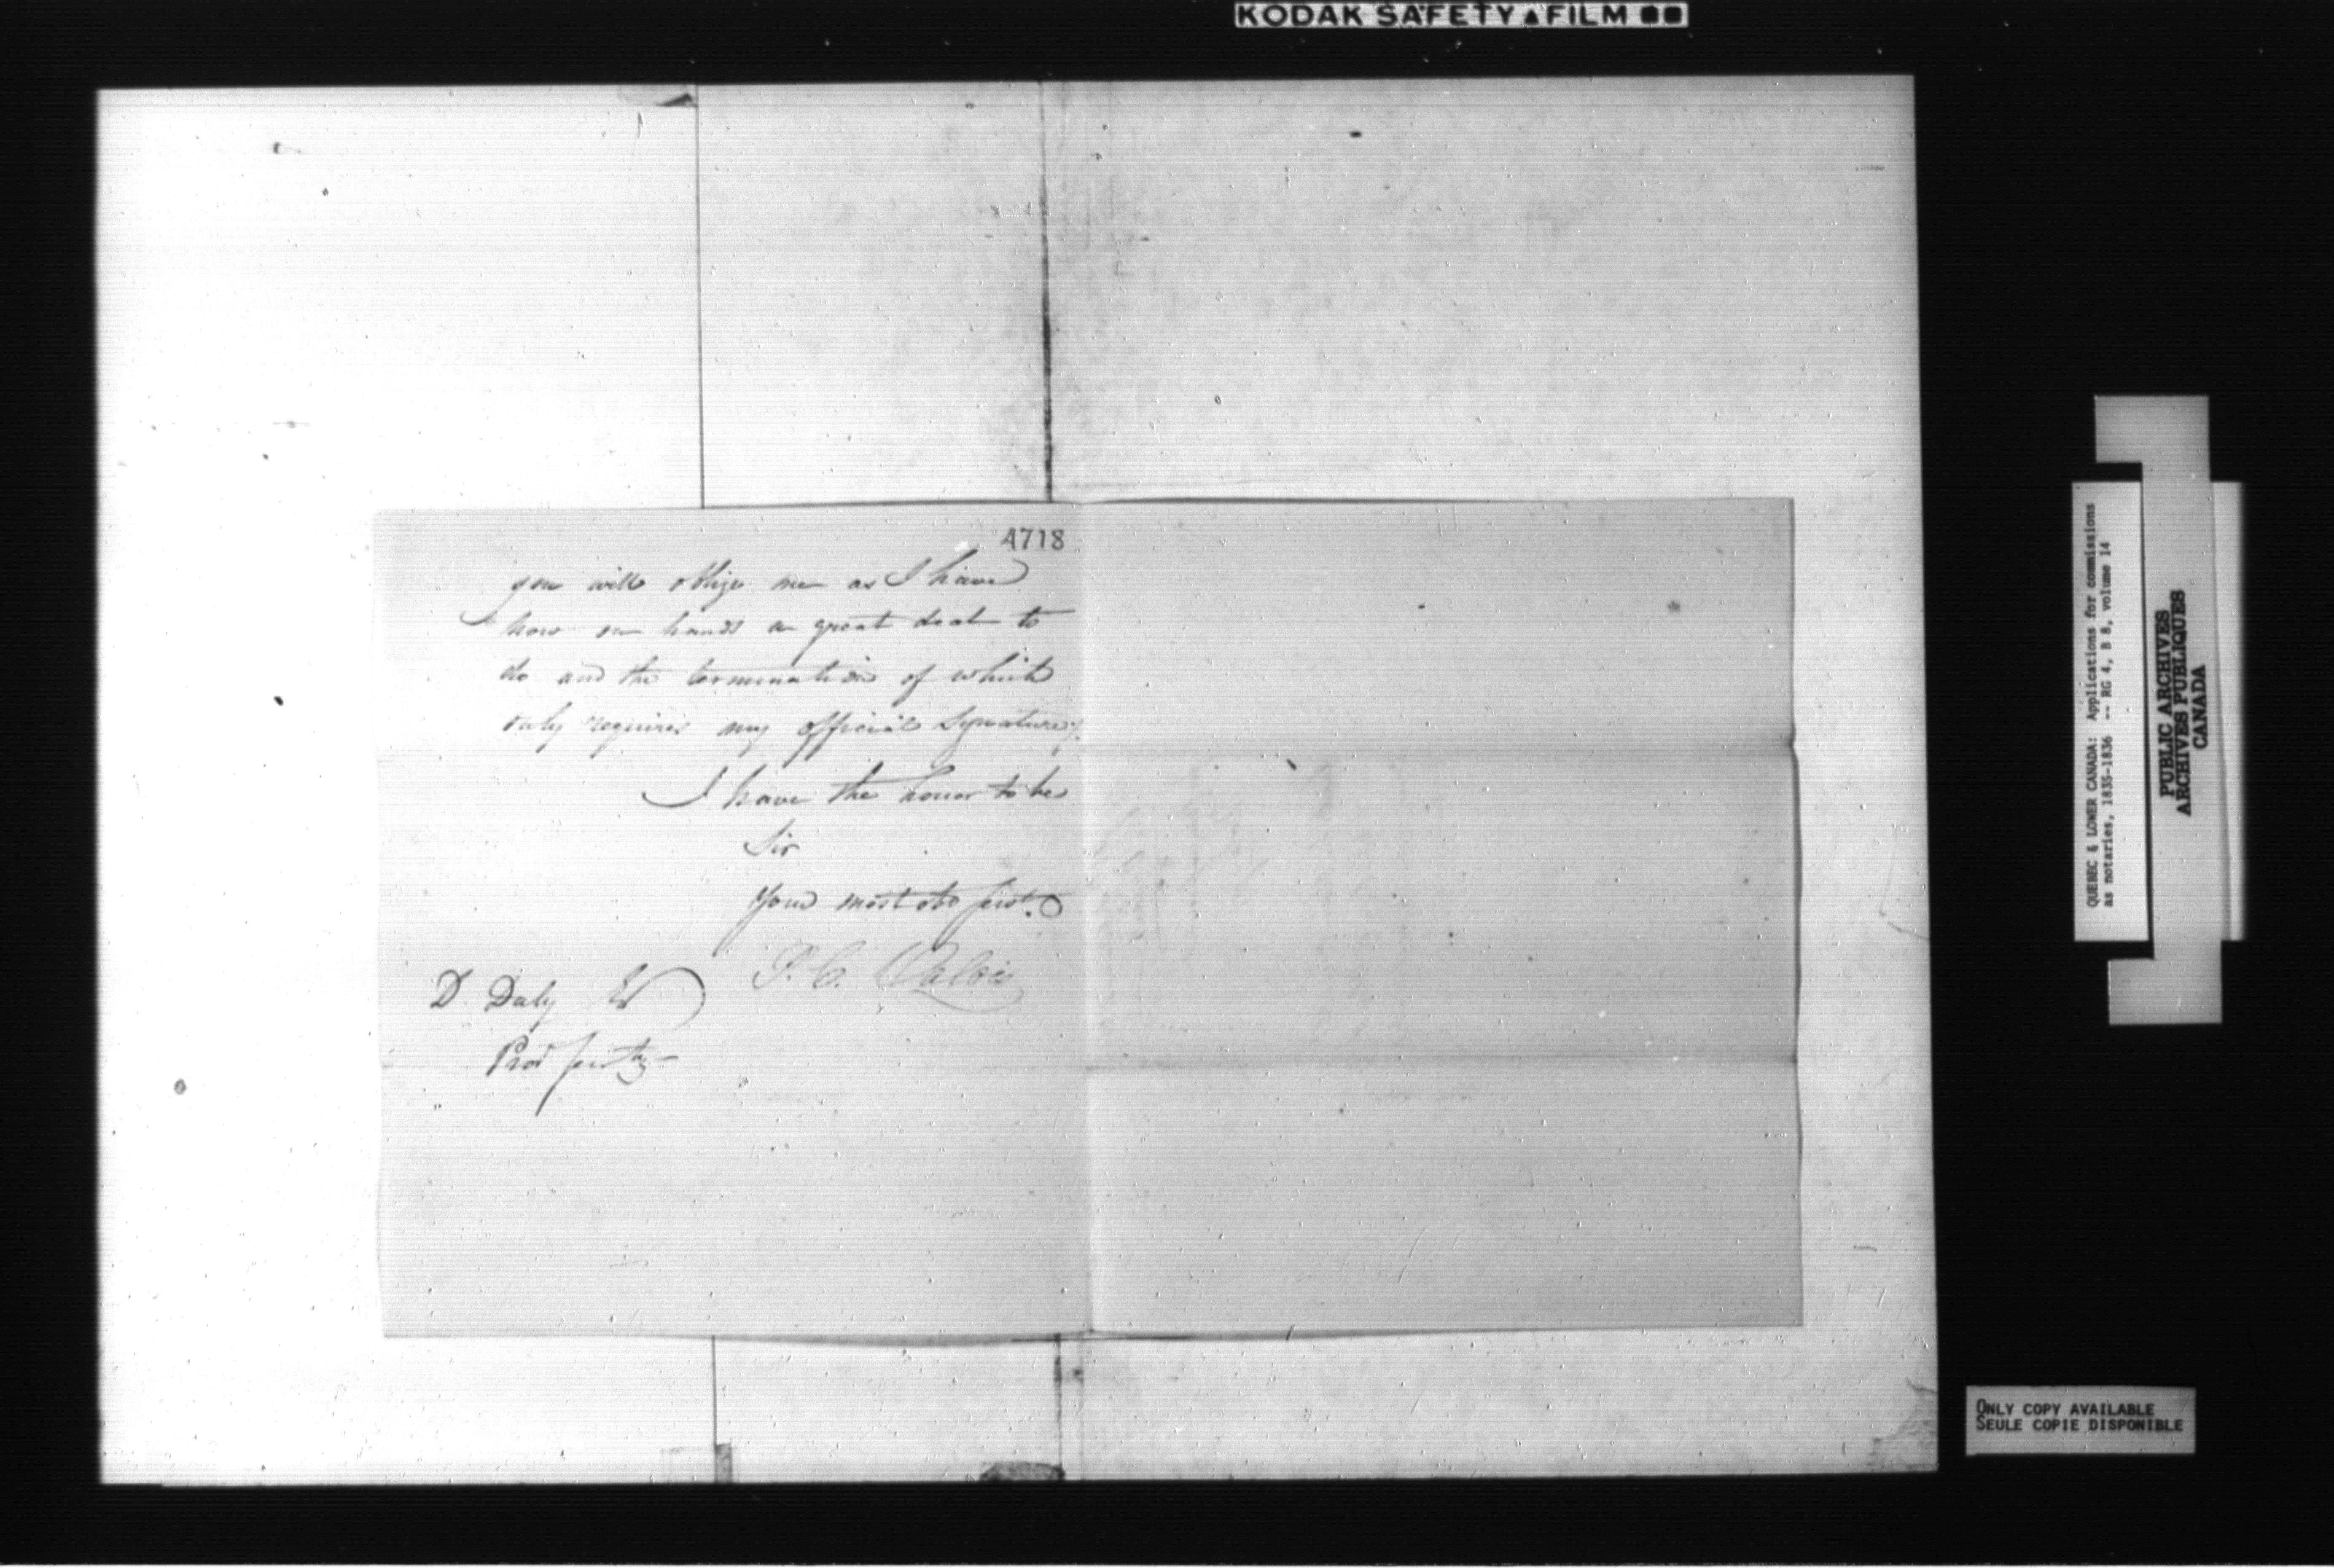 KODAK SAFETY ▲ FILM
4718
you will oblige me as I have
now on hands a great deal to
do and the termination of which
only requires my official Signature.
I have the honor to be
Sir
Your most obt Servt.
P. C. Valois
D. Daly Es
Prov Secrty
QUEBEC & LOWER CANADA: Applications for commissions
as notaries, 1835-1836 -- RG 4, B 8, volume 14
PUBLIC ARCHIVES
ARCHIVES PUBLIQUES
CANADA
ONLY COPY AVAILABLE
SEULE COPIE DISPONIBLE